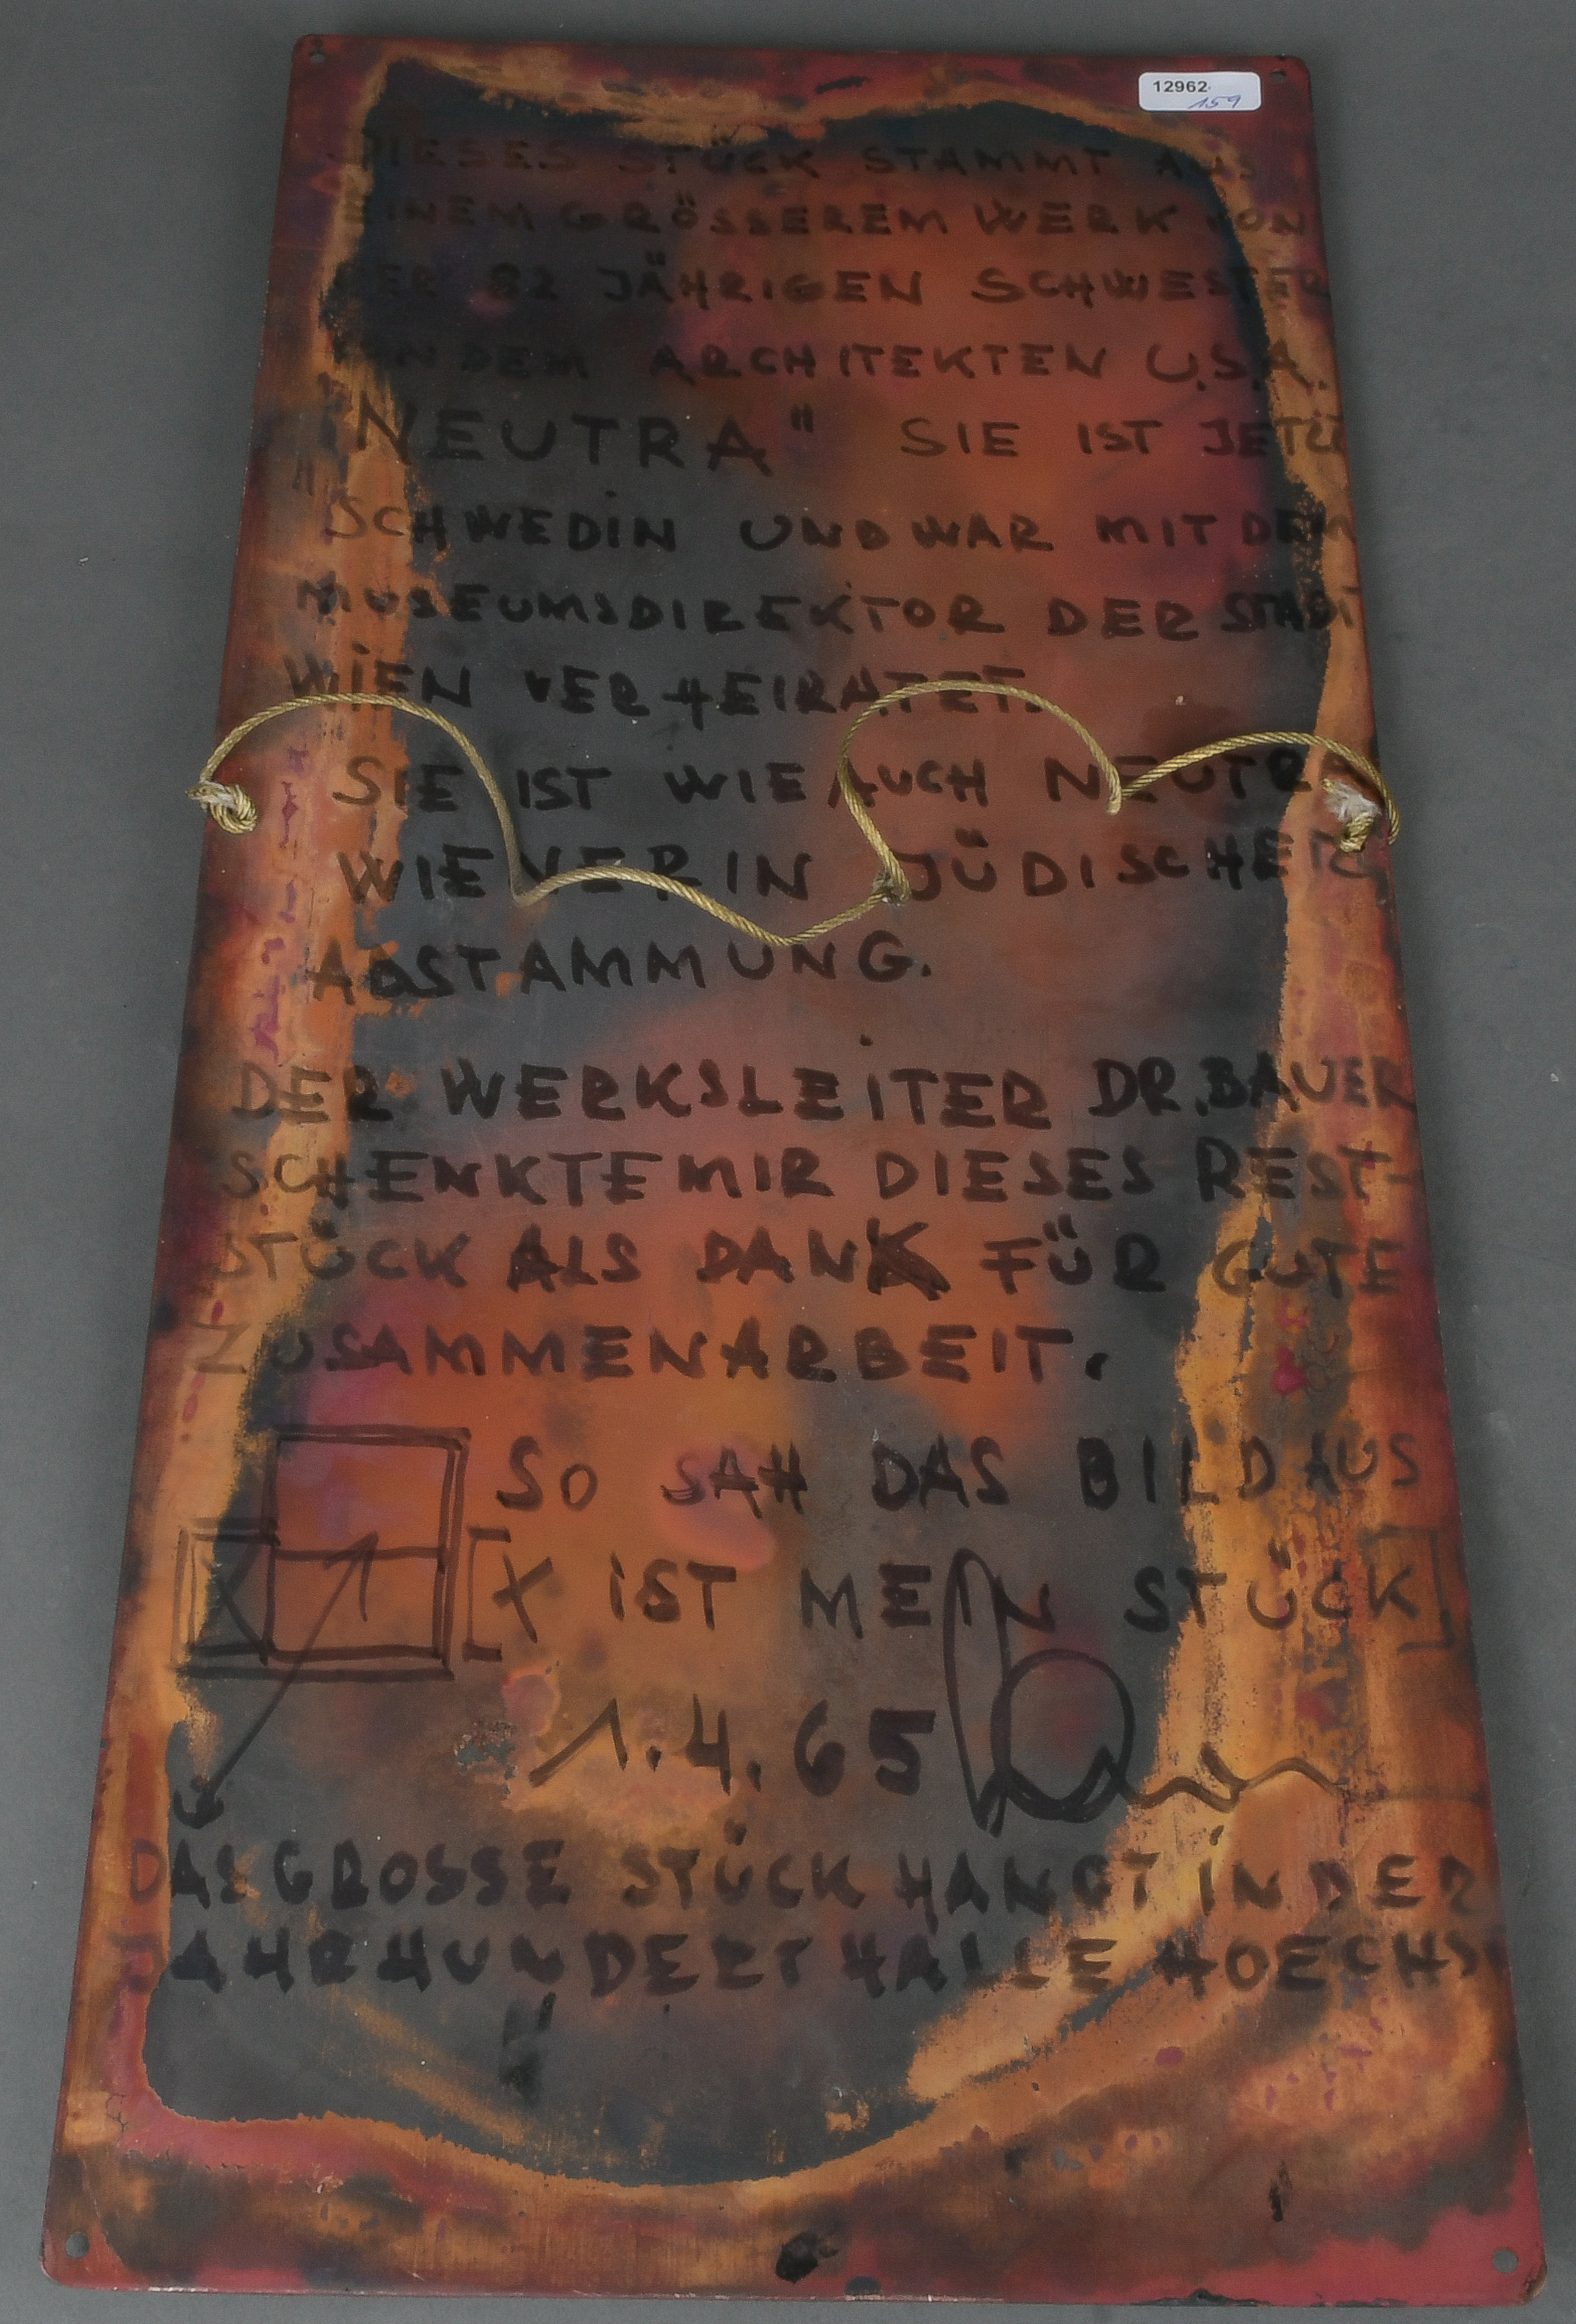 12962
159
DIESES STÜCK STAMMT AUS
EINEM GRÖSSEREM WERK VON
DER 82 JÄHRIGEN SCHWESTER
VON DEM ARCHITEKTEN U.S.A.
"NEUTRA" SIE IST JETZT
SCHWEDIN UND WAR MIT DEM
MUSEUMSDIREKTOR DER STADT
WIEN VERHEIRATET.
SIE IST WIE AUCH NEUTRA
WIENERIN JÜDISCHER
ABSTAMMUNG.
DER WERKSLEITER DR. BAUER
SCHENKTE MIR DIESES REST-
STÜCK ALS DANK FÜR GUTE
ZUSAMMENARBEIT.
SO SAH DAS BILD AUS
X [X IST MEIN STÜCK]
1.4.65
DAS GROSSE STÜCK HANGT IN DER
JAHRHUNDERTHALLE HOECHST